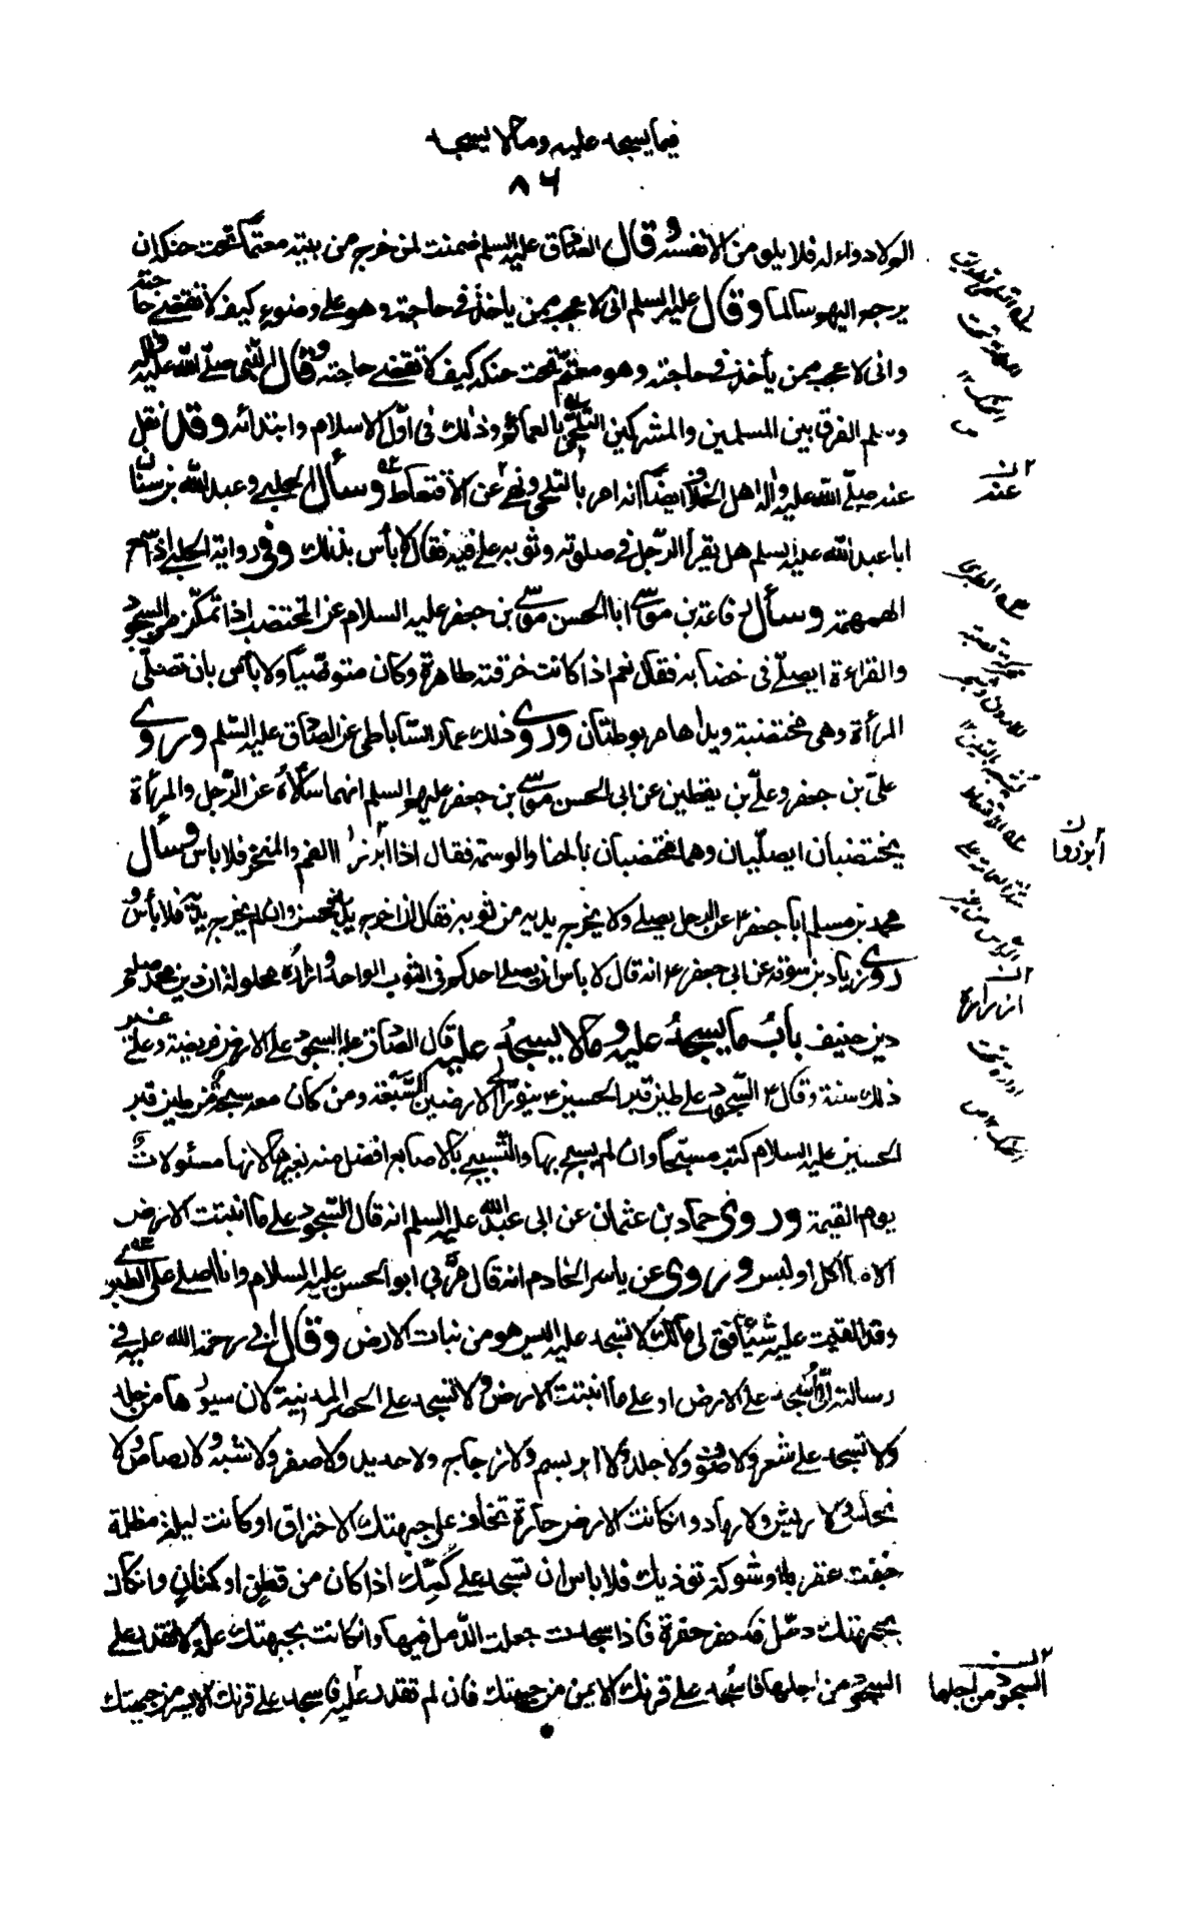 فيما يسجد عليه وما لا يسجد
٨٦
له لا دواء له فلا يلومن الا نفسه وقال الصادق عليه السلم ضمنت لمن خرج من بيته معتما تحت حنكه ان
يرجع اليهم سالما وقال عليه السلم انى لاعجب ممن ياخذ فى حاجة وهو على وضوء كيف لا تقضى حاجته
وانى لاعجب ممن يأخذ فى حاجته وهو معتم تحت حنكه كيف لا تقضى حاجته وقال النبى صلى الله عليه واله
الفرق بين المسلمين والمشركين التلحى بالعمائم وذلك فى اول الاسلام وابتدائه وقد نقل
عنه صلى الله عليه واله اهل الخلاف ايضا انه امر بالتلحى ونهى عن الاقتعاط وسأل الحلبى وعبد الله بن سنان
ابا عبد الله عليه السلم هل يقرأ الرجل فى صلوته وثوبه على فيه فقال لا بأس بذلك وفى رواية الحلبى اذا سمع
الهمهمة وسأل رفاعة بن موسى ابا الحسن موسى بن جعفر عليه السلام عن المختضب اذا تمكن من السجود
والقراءة ايصلى فى خضابه فقال نعم اذا كانت خرقته طاهرة وكان متوضيا ولا بأس بان تصلى
المرأة وهى مختضبة ويداها مربوطتان وروى ذلك عمار الساباطى عن الصادق عليه السلم وروى
على بن جعفر وعلى بن يقطين عن ابى الحسن موسى بن جعفر عليهما السلم انهما سألاه عن الرجل والمرأة
يختضبان ايصليان وهما مختضبان بالحنا والوسمة فقال اذا ابرز الفم والمنخر فلا باس وسأل
محمد بن مسلم ابا جعفر ع عن الرجل يصلى ولا يخرج يديه من ثوبه فقال ان اخرج يديه فحسن وان لم يخرج يديه فلا بأس و
روى زياد بن سوقة عن ابى جعفر ع انه قال لا بأس ان يصلى احدكم فى الثوب الواحد وازراره محلولة ان دين محمد صلعم
دين حنيف باب ما يسجد عليه وما لا يسجد عليه قال الصادق ع السجود على الارض فريضة وعلى غير
ذلك سنة وقال ع السجود على طين قبر الحسين ع ينور الى الارضين السبعة ومن كان معه سبحة من طين قبر
الحسين عليه السلام كتب مسبحا وان لم يسبح بها والتسبيح بالاصابع افضل منه بغيرها لانها مسئولات
يوم القيمة وروى حماد بن عثمان عن ابى عبد الله عليه السلم انه قال السجود على ما انبتت الارض
الا ما اكل او لبس وروى عن ياسر الخادم انه قال مر بى ابو الحسن عليه السلام وانا اصلى على الطبرى
وقد القيت عليه شيئا فقال لى مالك لا تسجد عليه اليس هو من نبات الارض وقال ابى رحمة الله عليه فى
رسالته الى اسجد على الارض او على ما انبتت الارض ولا تسجد على الحصر المدنية لان سيورها من جلد
ولا تسجد على شعر ولا صوف ولا جلد ولا ابريسم ولا زجاج ولا حديد ولا صفر ولا شبه ولا رصاص ولا
نحاس ولا ريش ولا رماد وان كانت الارض حارة تخاف على جبهتك الاحتراق او كانت ليلة مظلمة
خفت عقربا او شوكة تؤذيك فلا باس ان تسجد على كمك اذا كان من قطن او كتان وان كان
بجبهتك دمل فاحفر حفرة فاذا سجدت جعلت الدمل فيها وان كانت بجبهتك علة لا تقدر على
السجود من اجلها فاسجد على قرنك الايمن من جبهتك فان لم تقدر عليه فاسجد على قرنك الايسر من جبهتك
عند
أبو زوان
السجود من اجلها